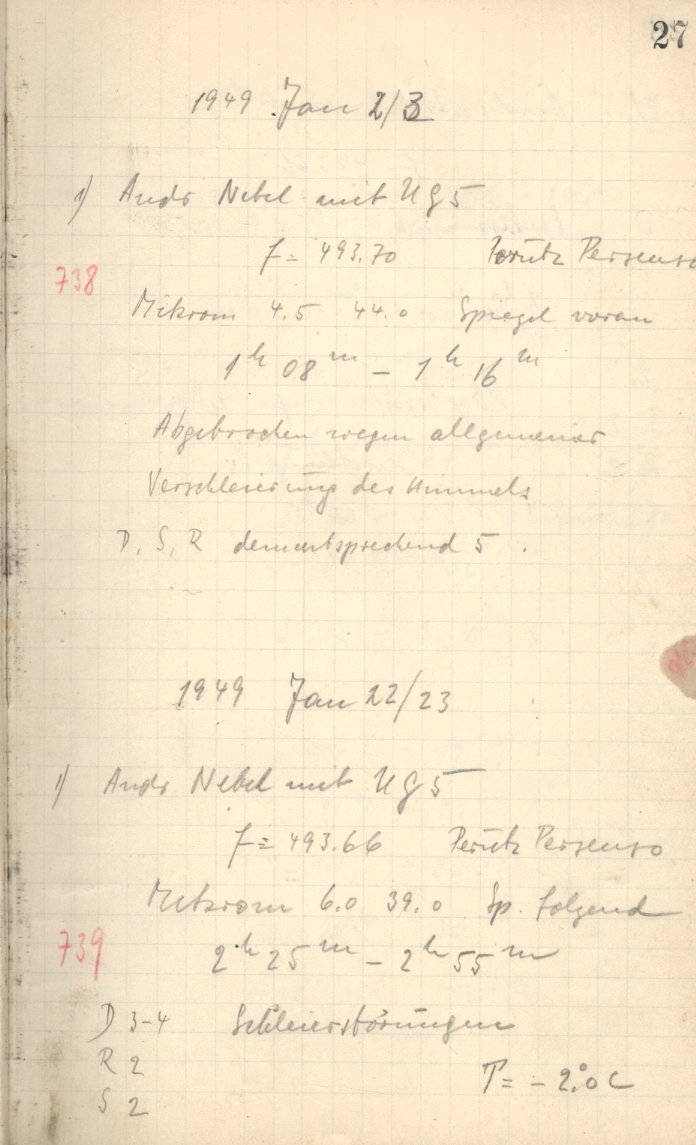 27
1949 Jan 2/3
1) Andr Nebel mit UG5
f = 493.70 Perutz Persenso
738
Mikrom 4.5 44.0 Spiegel voran
1h 08m – 1h 16m
Abgebrochen wegen allgemeiner
Verschleierung des Himmels
D, S, R dementsprechend 5.
1949 Jan 22/23
1) Andr Nebel mit UG5
f = 493.66 Perutz Persenso
Mikrom 6.0 39.0 Sp. folgend
739
2h 25m – 2h 55m
D 3-4 Schleierstörungen
R 2
T = – 2.°0 C
S 2